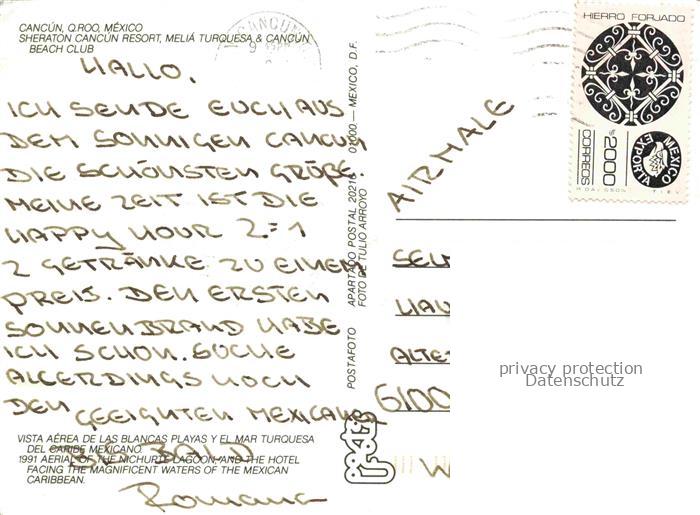 CANCÚN, Q.ROO, MÉXICO
SHERATON CANCÚN RESORT, MELIÁ TURQUESA & CANCÚN
BEACH CLUB
HALLO,
ICH SENDE EUCH AUS
DEM SONNIGEN CANCUN
DIE SCHÖNSTEN GRÜßE.
MEINE ZEIT IST DIE
HAPPY HOUR 2=1
2 GETRÄNKE ZU EINEM
PREIS. DEN ERSTEN
SONNENBRAND HABE
ICH SCHON. SUCHE
ALLERDINGS NOCH
DEN GEEIGNTEN MEXICANER
BIS BALD
Romana
VISTA AÉREA DE LAS BLANCAS PLAYAS Y EL MAR TURQUESA
DEL CARIBE MEXICANO.
1991 AERIAL OF THE NICHUPTE LAGOON, AND THE HOTEL
FACING THE MAGNIFICENT WATERS OF THE MEXICAN
CARIBBEAN.
POSTAFOTO APARTADO POSTAL 20216 01000 — MEXICO, D.F.
FOTO DE TULIO ARROYO
CANCUN
9
AIRMALE
HIERRO FORJADO
MEXICO
EXPORTA
$2000
CORREOS
6100
privacy protection
Datenschutz